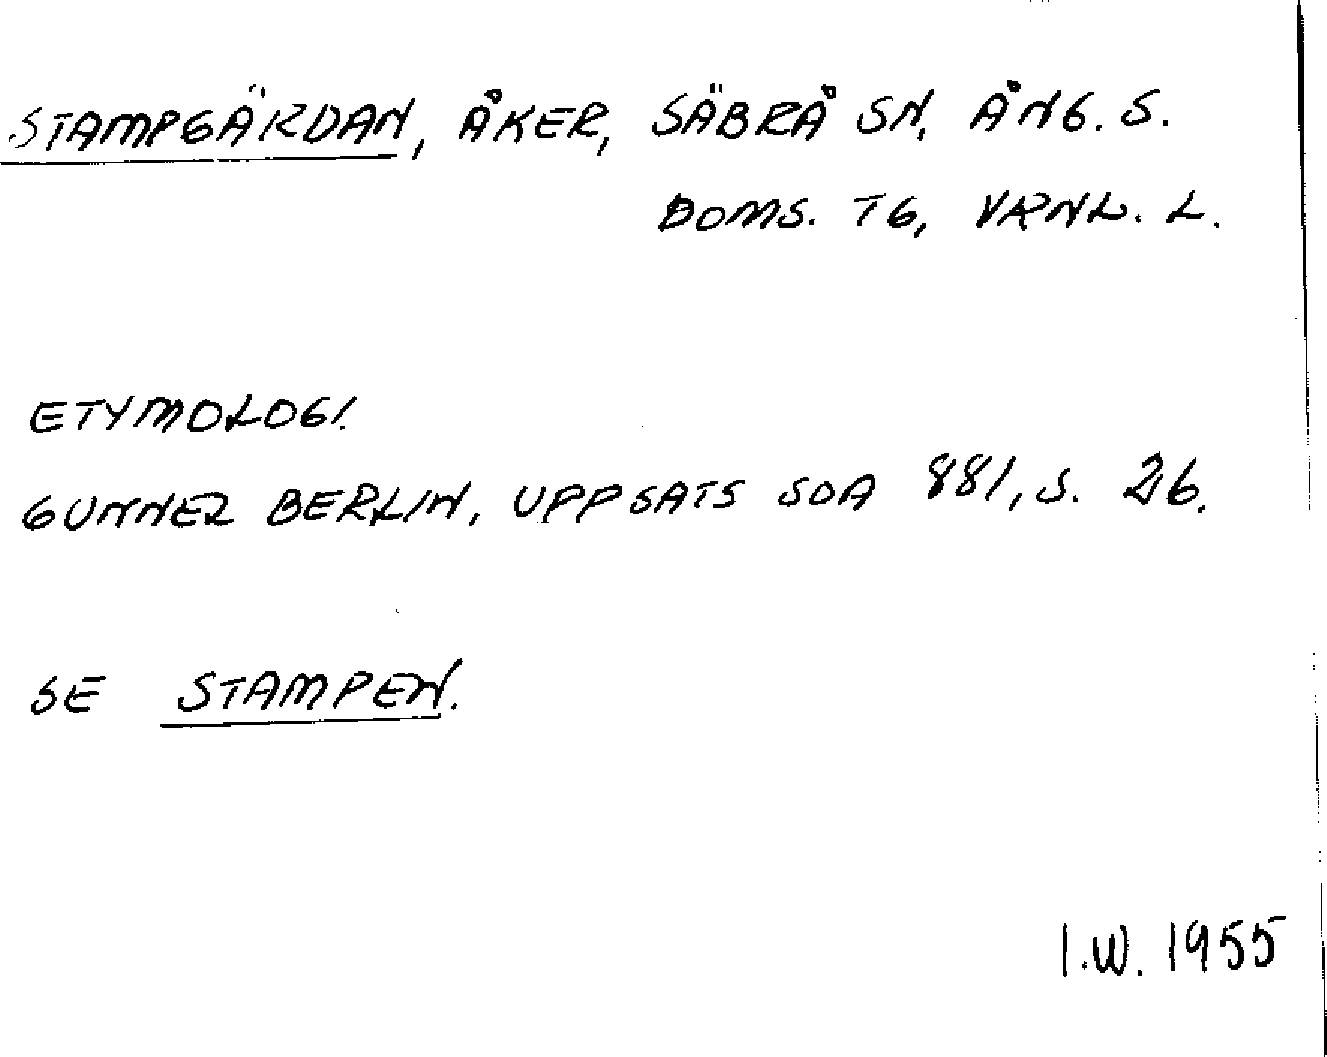 STAMPGÄRDAN, ÅKER, SÄBRÅ SN, ÅNG. S.
DOMS. TG, VRNL. L.
ETYMOLOGI.
GUNNER BERLIN, UPPSATS SOA 881, S. 26.
SE STAMPEN.
I.W. 1955